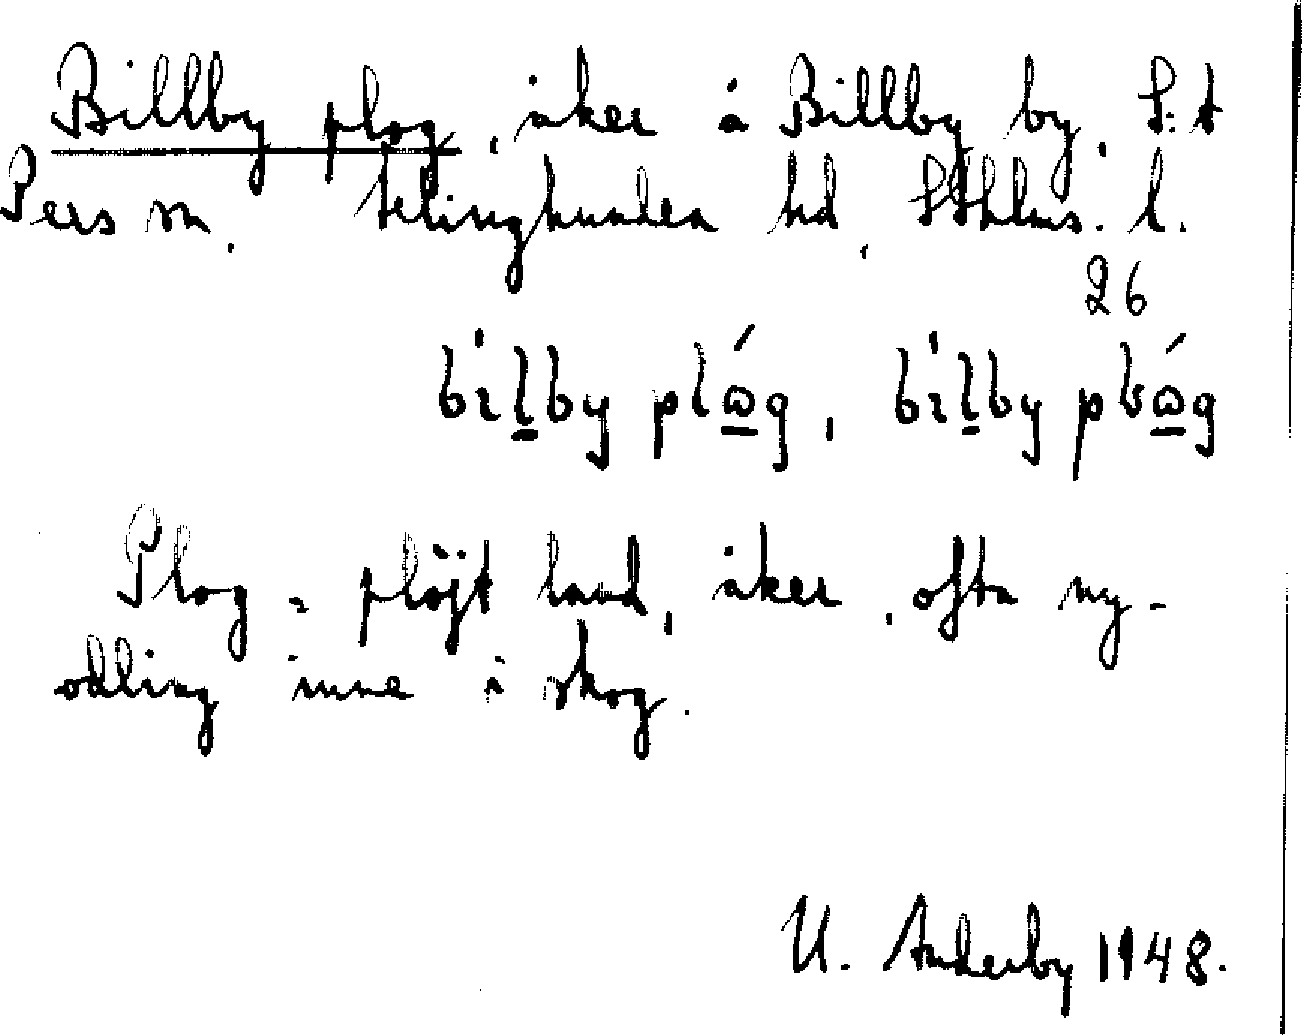 Billby plog, åker å Billby by, S:t
Pers sn, Seminghundra hd, Sthlms. l.
26
bɪlby plɷ́g, bɪlby pɫɷ́g
Plog = plöjt land, åker, ofta ny-
odling inne i skog.
U. 1948.